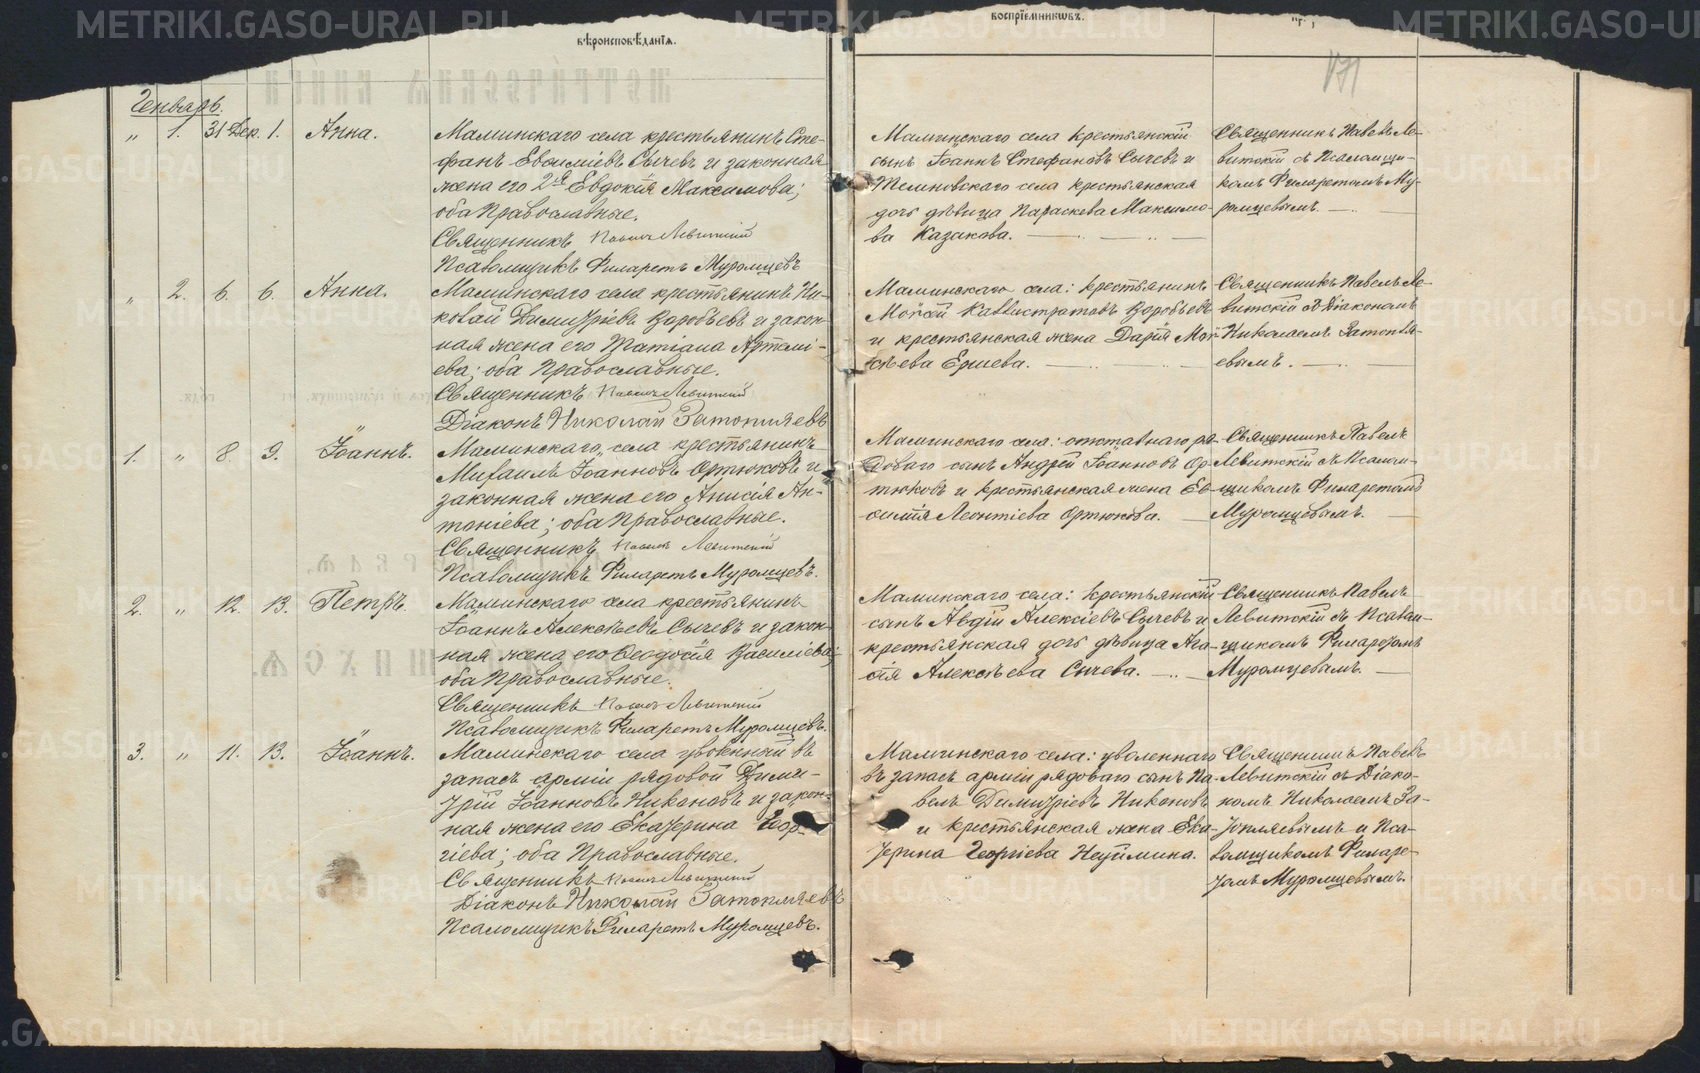 METRIKI.GASO-URAL.RU
вѣроисповѣданія.
воспріемниковъ.
171
Генварь.
„ 1. 31 Дек. 1. Анна.
Маминскаго села крестьянинъ Сте-
фанъ Евсиміевъ Сычевъ и законная
жена его 2я Евдокія Максимова;
оба Православные.
Священникъ Павелъ Левитскій
Псаломщикъ Филаретъ Муромцевъ
Маминскаго села крестьянскій
сынъ Іоаннъ Стефановъ Сычевъ и
села крестьянская
дочь дѣвица Параскева Максимо-
ва Казакова.
Священникъ Павелъ Ле-
витскій съ Псаломщи-
комъ Филаретомъ Му-
ромцевымъ.
„ 2. 6. 6. Анна.
Маминскаго села крестьянинъ Ни-
колай Димитріевъ Воробьевъ и закон-
ная жена его Татіана Артемі-
ева; оба Православные.
Священникъ Павелъ Левитскій
Діаконъ Николай Затопляевъ
Маминскаго села: крестьянинъ
Моѵсей Каллистратовъ Воробьевъ
и крестьянская жена Дарія Мои-
сѣева Ершева.
Священникъ Павелъ Ле-
витскій съ Діакономъ
Николаемъ Затопля-
евымъ.
1. „ 8. 9. Іоаннъ.
Маминскаго села крестьянинъ
Михаилъ Іоанновъ Ортюковъ и
законная жена его Анисія Ан-
тоніева; оба Православные.
Священникъ Павелъ Левитскій
Псаломщикъ Филаретъ Муромцевъ.
Маминскаго села: отставнаго ря-
доваго сынъ Андрей Іоанновъ Ор-
тюковъ и крестьянская жена Ев-
Леонтіева Ортюкова.
Священникъ Павелъ
Левитскій съ Псалом-
щикомъ Филаретомъ
Муромцевымъ.
2. „ 12. 13. Петръ.
Маминскаго села крестьянинъ
Іоаннъ Алексѣевъ Сычевъ и закон-
ная жена его Ѳеодосія Василіева;
оба Православные.
Священникъ Павелъ Левитскій
Псаломщикъ Филаретъ Муромцевъ.
Маминскаго села: крестьянскій
сынъ Авдій Алексіевъ Сычевъ и
крестьянская дочь дѣвица Ага-
сія Алексѣева Сычева.
Священникъ Павелъ
Левитскій съ Псалом-
щикомъ Филаретомъ
Муромцевымъ.
3. „ 11. 13. Іоаннъ.
Маминскаго села уволенный въ
запасъ арміи рядовой Дими-
трій Іоанновъ Никоновъ и закон-
ная жена его Екатерина Геор-
гіева; оба Православные.
Священникъ Павелъ Левитскій
Діаконъ Николай Затопляевъ
Псаломщикъ Филаретъ Муромцевъ.
Маминскаго села: уволеннаго
въ запасъ арміи рядоваго сынъ Па-
велъ Димитріевъ Никоновъ
и крестьянская жена Ека-
терина Георгіева Неуймина.
Священникъ Павелъ
Левитскій съ Діако-
номъ Николаемъ За-
топляевымъ и Пса-
ломщикомъ Филаре-
томъ Муромцевымъ.